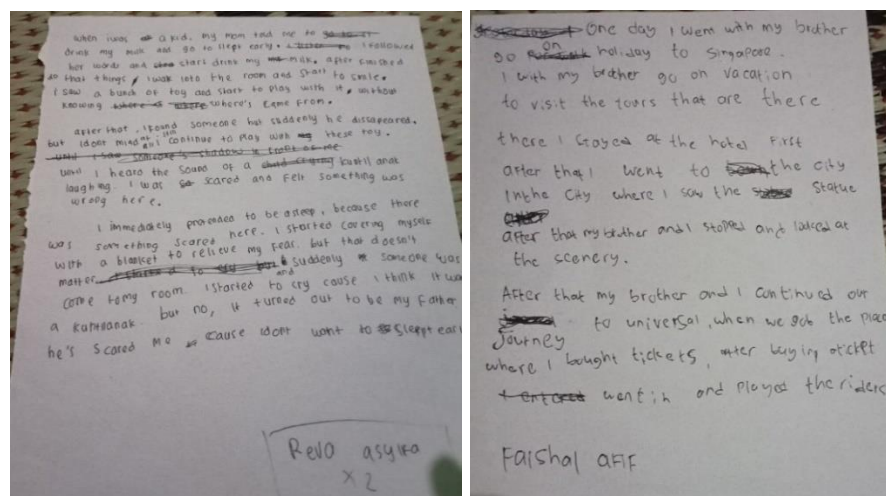 when iwas a kid. my mom told me to
drink my milk and go to slept early. I followed
her words and start drink my milk. after finished
that things, I walk into the room and start to smile.
I saw a bunch of toy and start to play with it, without
knowing where's came from.
after that, I found someone but suddenly he dissapeared.
but idont mind at all continue to play with these toy.
until I heard the sound of a kuntilanak
laughing. I was scared and felt something was
wrong here.
I immediately pretended to be asleep, because there
was something scared here. I started covering myself
with a blanket to relieve my fear. but that doesn't
matter. suddenly someone was
come tomy room. and Istarted to cry cause I think it wa
a kuntilanak. but no, it turned out to be my father
he's scared me cause idont want to sleept earl
Reva asyifa
X2
One day I went with my brother
go on holiday to Singapore.
I with my brother go on vacation
to visit the tours that are there
there I stayed at the hotel first
after that I went to the city
Inthe City where I saw the statue
after that my brother and I stopped and looked at
the scenery.
After that my brother and I continued our
journey to universal, when we got the place
where I bought tickets, after buying oticket
went in and played the riders
Faishal afif